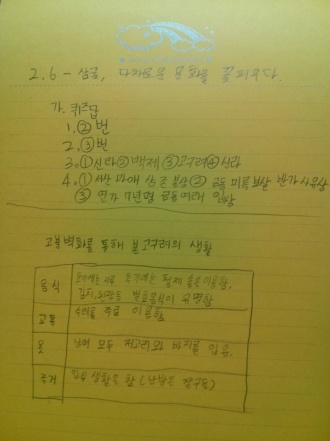 2.6 - 삼국, 다채로운 문화를 꽃피우다.
가. 퀴즈답
1. ② 번
2. ③ 번
3. ① 신라 ② 백제 ③ 고구려 ④ 신라
4. ① 서산 마애 삼존 불상 ② 금동 미륵 보살 반가 사유상
③ 연가 7년명 금동 여래 입상
고분벽화를 통해 본 고구려의 생활
음식
김치, 된장 등 발효음식이 유명함
교통 수레를 주로 이용함
옷 남녀 모두 저고리와 바지를 입음.
주거 입식 생활을 함 (난방은 쪽구들)